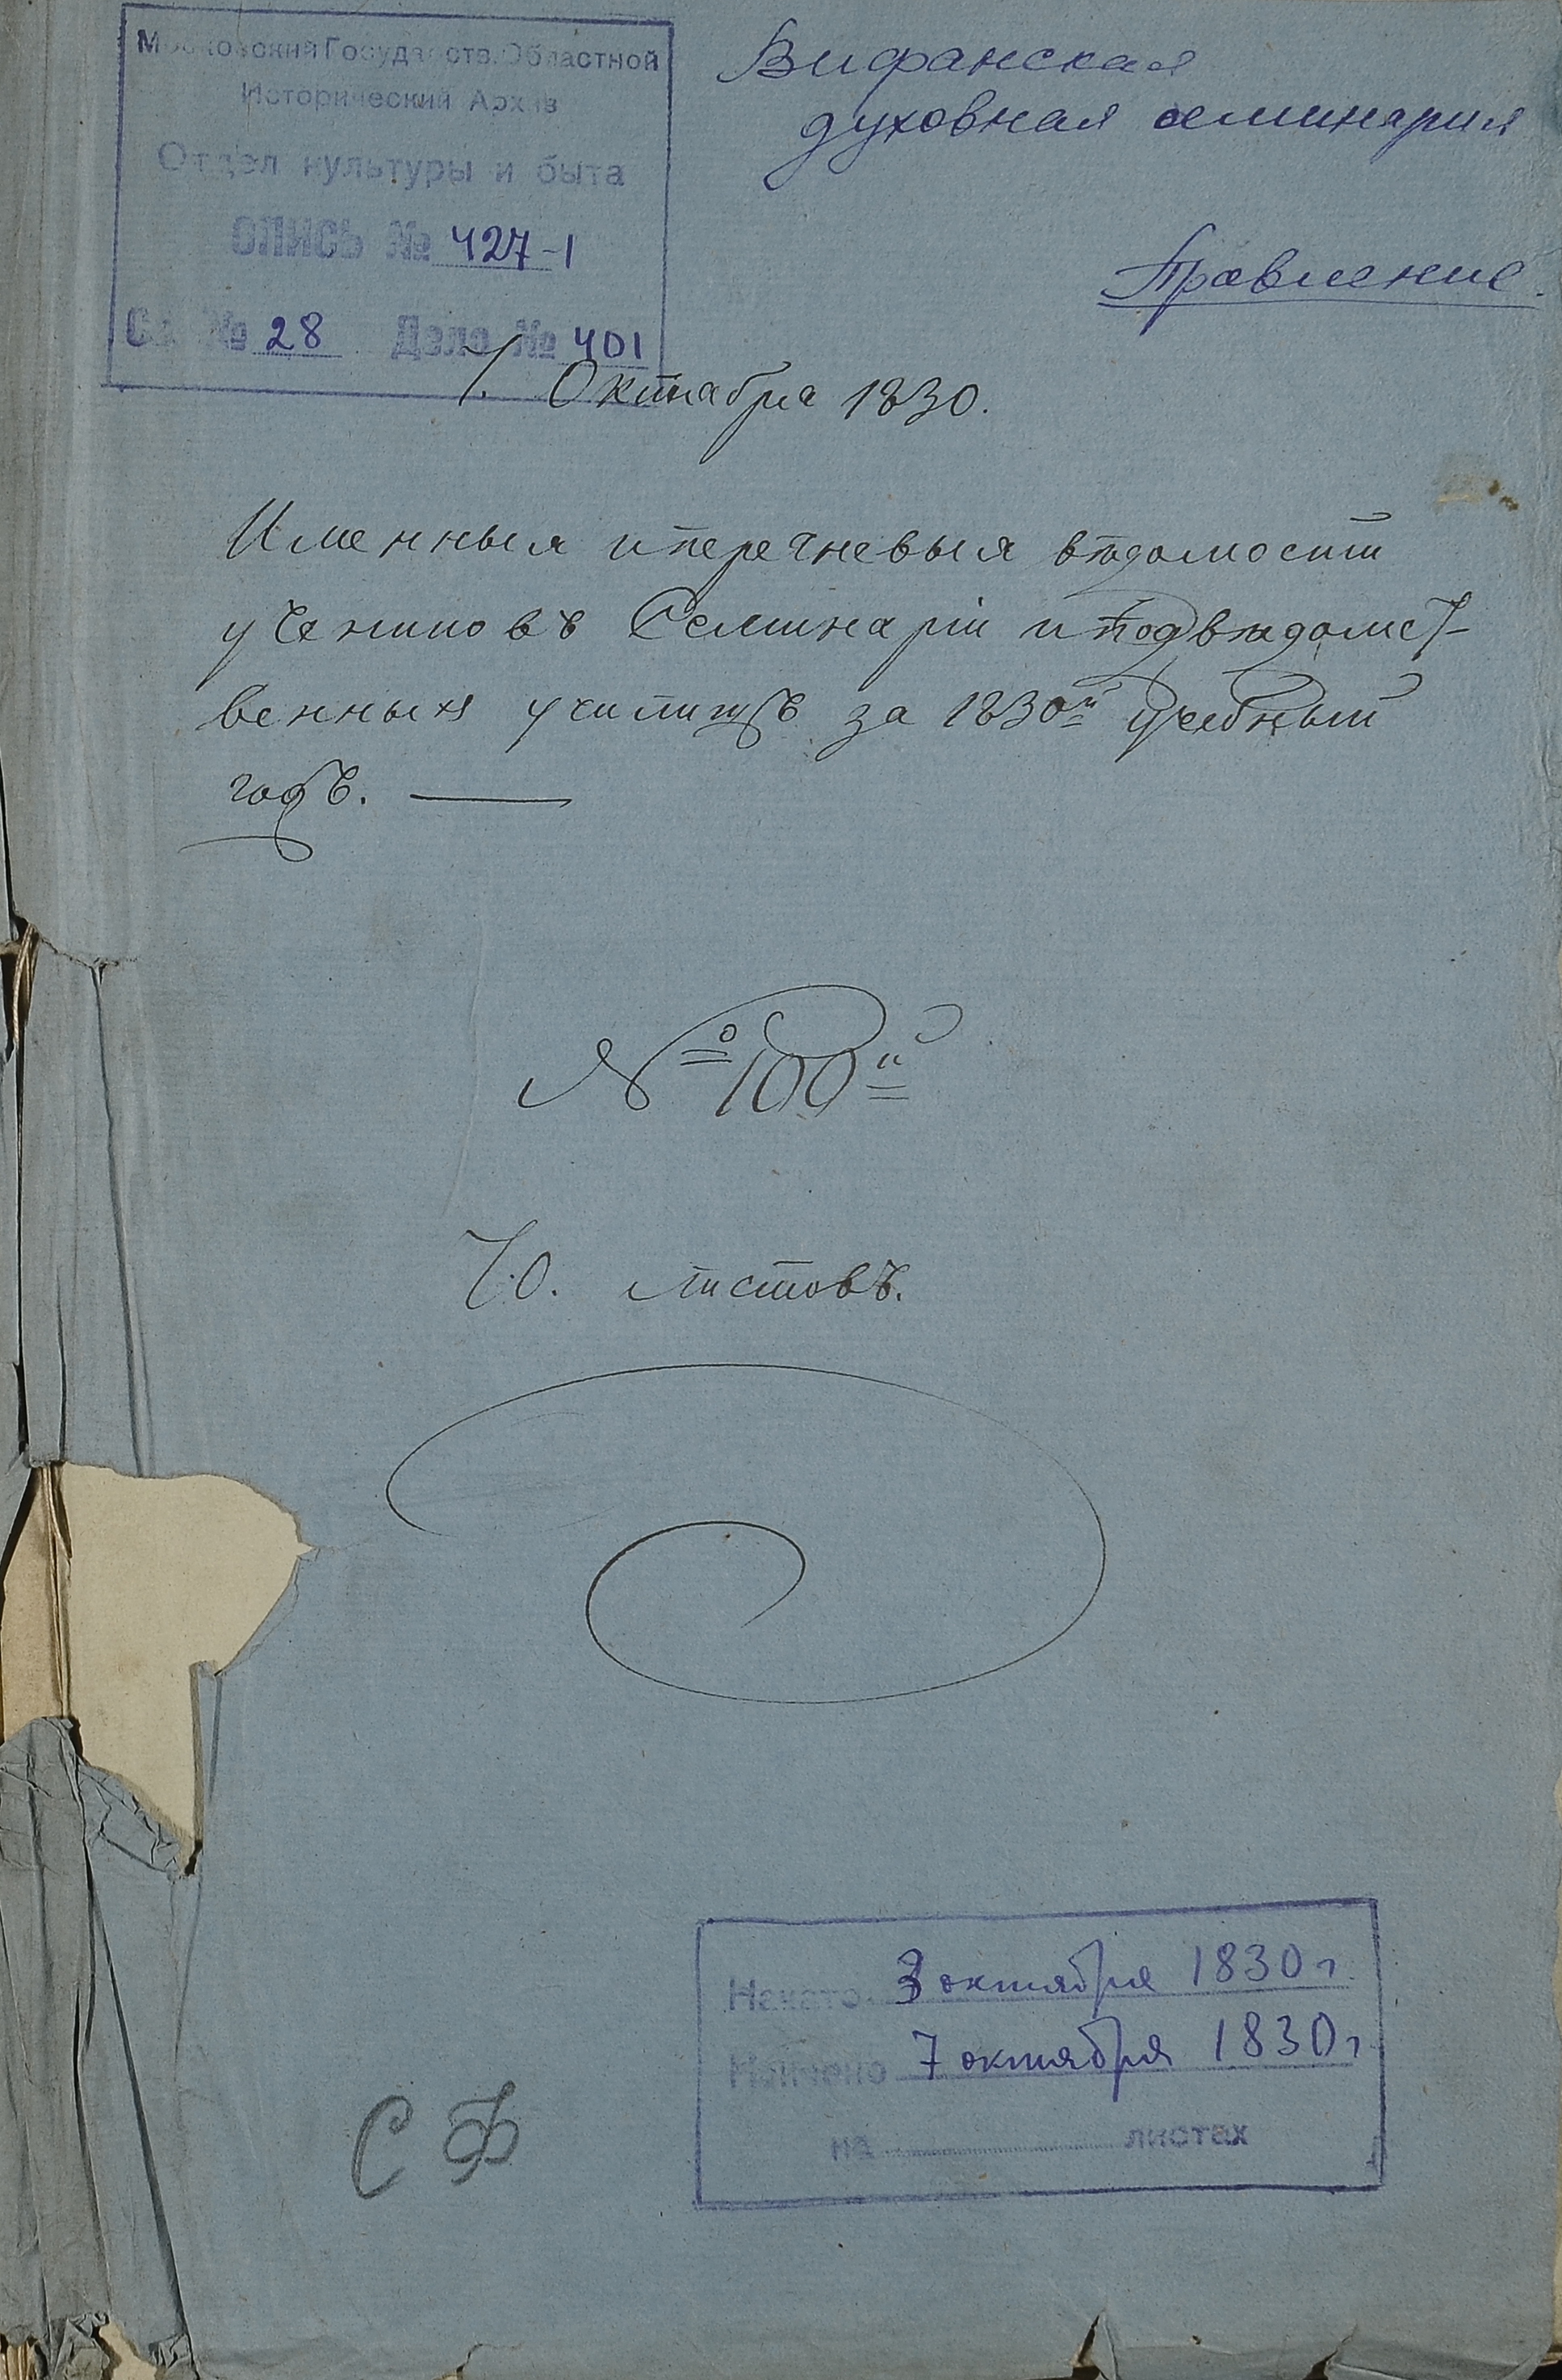 Московский Государств. Областной
Исторический Архив
Отдел культуры и быта
ОПИСЬ № 427-1
Св. № 28 Дело № 401
Вифанская
духовная семинария
Правление.
7. Октября 1830.
Именныя и перечневыя вѣдомости
учениковъ Семинаріи и подвѣдомст-
венныхъ училищъ за 1830й учебный
годъ.
№ 100й
70. листовъ.
Начато 3 октября 1830 г.
Кончено 7 октября 1830 г.
на листах
СФ